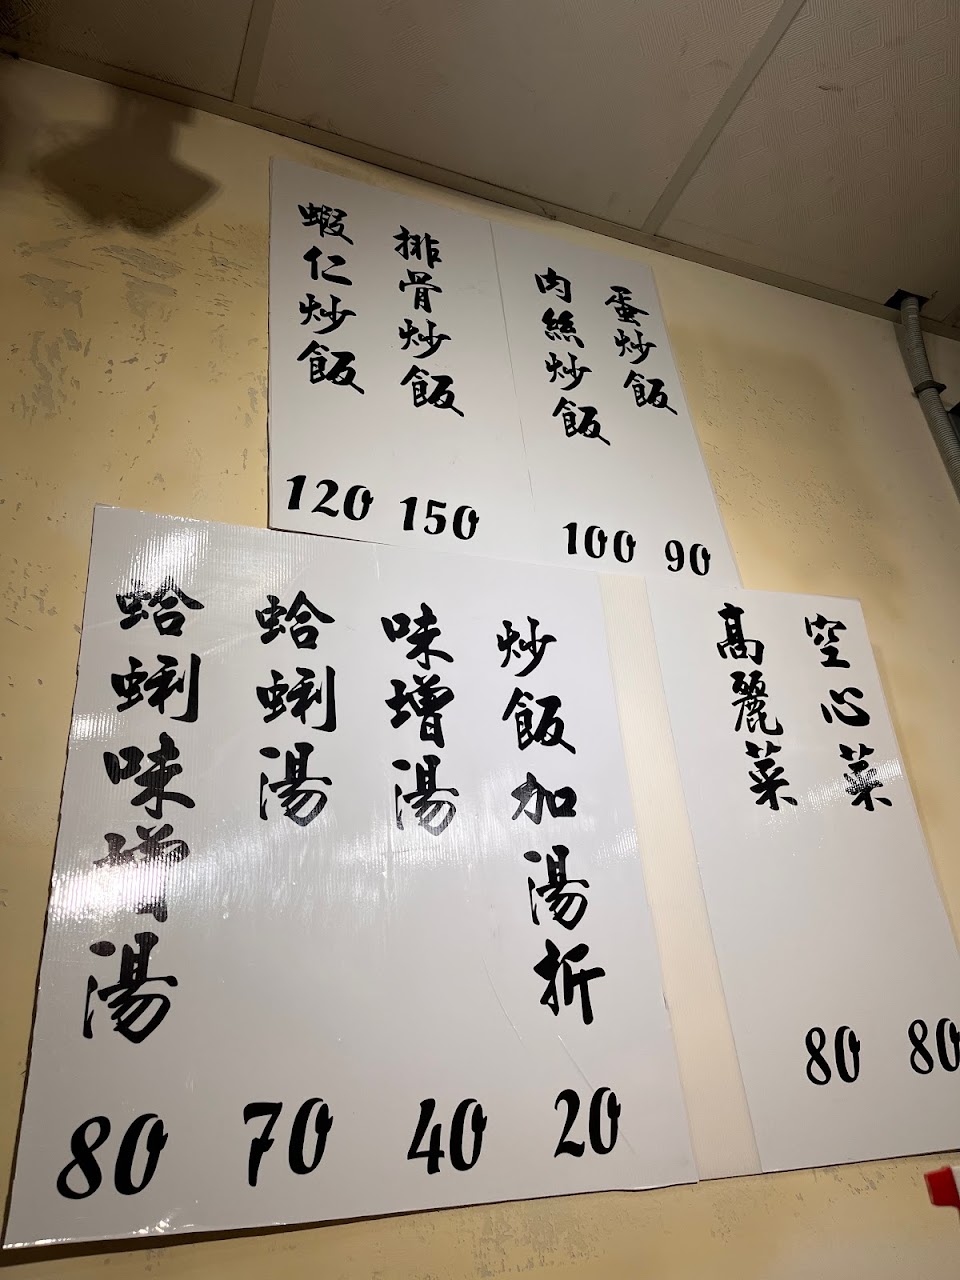 蛋炒飯
90
肉絲炒飯
100
排骨炒飯
150
蝦仁炒飯
120
空心菜
80
高麗菜
80
炒飯加湯折
20
味增湯
40
蛤蜊湯
70
蛤蜊味增湯
80